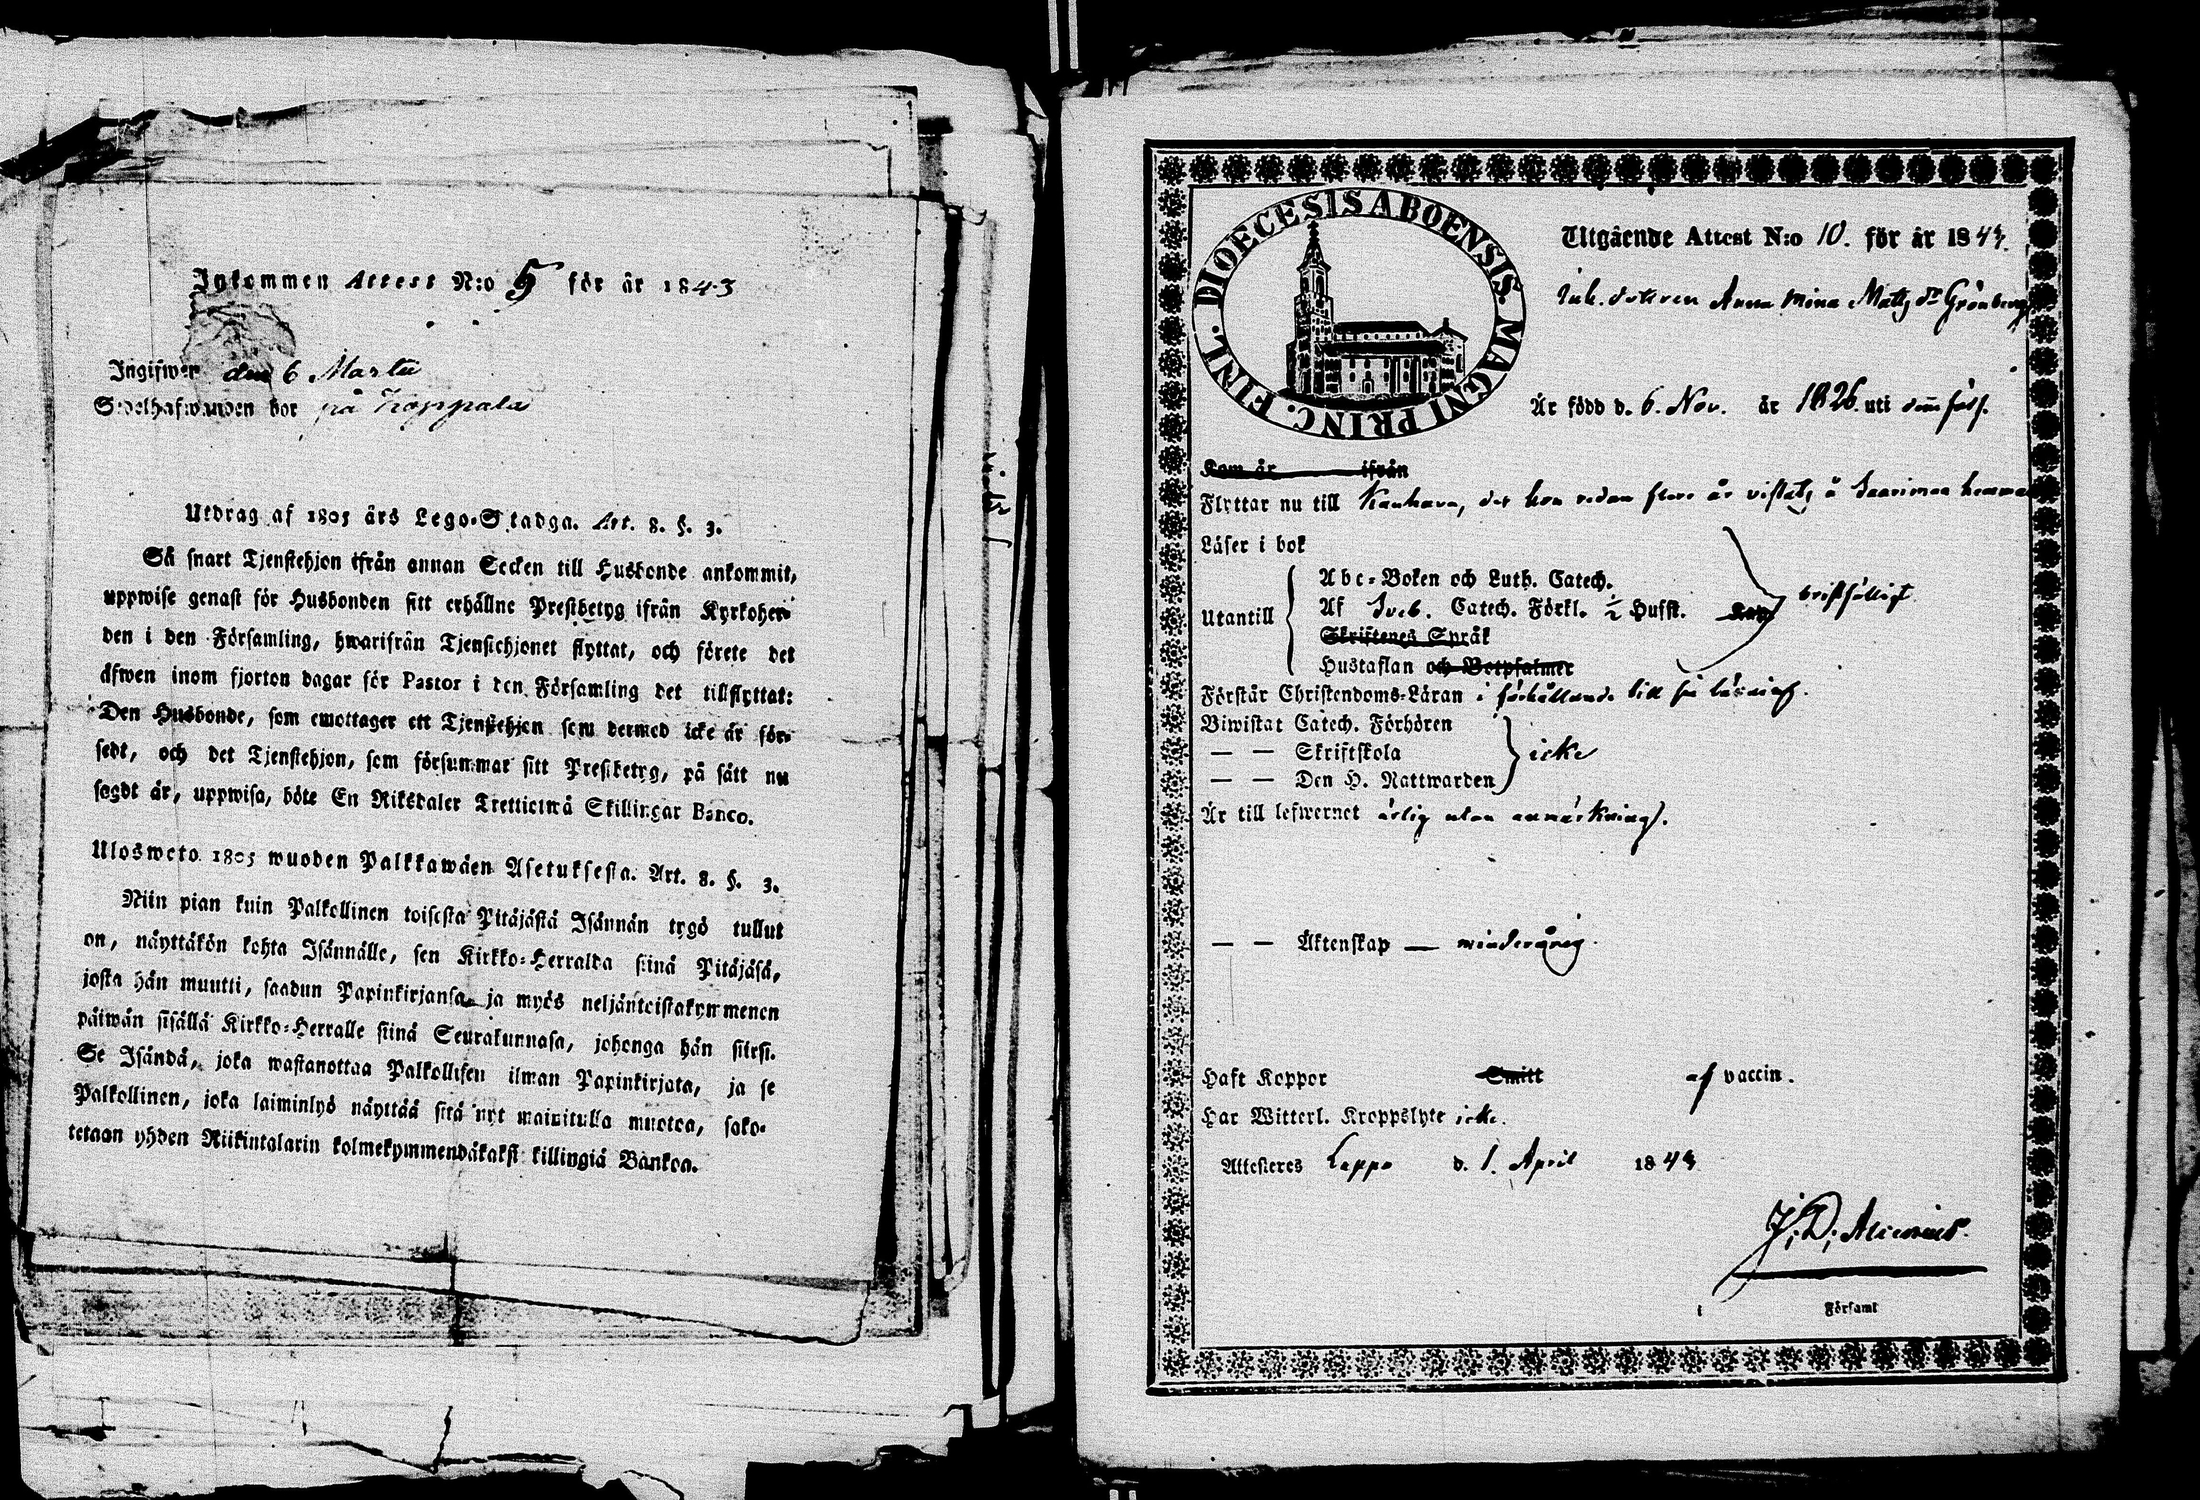 Inkommen Attest N:o 5 för år 1843
Ingifwen den 6 Martii
Sedelhafwanden bor på Koppala
Utdrag af 1805 års Lego-Stadga. Art. 8. §. 3.
Så snart Tjenstehjon ifrån annan Socken till Husbonde ankommit,
uppwise genast för Husbonden sitt erhållne Prestbetyg ifrån Kyrkoher-
den i den Församling, hwarifrån Tjenstehjonet flyttat, och förete det
äfwen inom fjorton dagar för Pastor i den Församling det tillflyttat:
Den Husbonde, som emottager ett Tjenstehjon som dermed icke är för-
sedt, och det Tjenstehjon, som försummar sitt Prestbetyg, på sätt nu
sagdt är, uppwisa, böte En Riksdaler Trettiotwå Skillingar Banco.
Ulosweto 1805 wuoden Palkkawäen Asetuksesta. Art. 8. §. 3.
Niin pian kuin Palkollinen toisesta Pitäjästä Isännän tygö tullut
on, näyttäkön kohta Isännälle, sen Kirkko-Herralda siinä Pitäjäsä,
josta hän muutti, saadun Papinkirjansa, ja myös neljäntoistakymmenen
päiwän sisällä Kirkko-Herralle siinä Seurakunnasa, johonga hän siirsi.
Se Isändä, joka wastanottaa Palkollisen ilman Papinkirjata, ja se
Palkollinen, joka laiminlyö näyttää sitä nyt mainitulla muotoa, sako-
tetaan yhden Riikintalarin kolmekymmendäkaksi killingiä Bankoa.
DIOECESIS ABOENSIS. MAGNI PRINC. FINL.
Utgående Attest N:o 10. för år 1843.
Inh. dotteren Anna Mina Matts dr Grönberg
Är född d. 6. Nov. år 1826. uti denna förs.
Kom år ifrån
Flyttar nu till Kauhava, der hon redan flere år vistats å Saarimaa hemman
Läser i bok
Abc-Boken och Luth. Catech.
Utantill Af Sveb. Catech. Förkl. ½ Hufst. bristfälligt
Skriftenes Språk
Hustaflan och Botpsalmer
Förstår Christendoms-Läran i förhållande till sin läsning.
Biwistat Catech. Förhören
— — Skriftskola icke
— — Den H. Nattwarden
Är till lefwernet ärlig utan anmärkning.
— — Äktenskap — minderårig.
Haft Koppor Smitt af vaccin.
Har Witterl. Kroppslyte icke.
Attesteras Lappo d. 1. April 1843
J. D. Alcenius.
i Församl